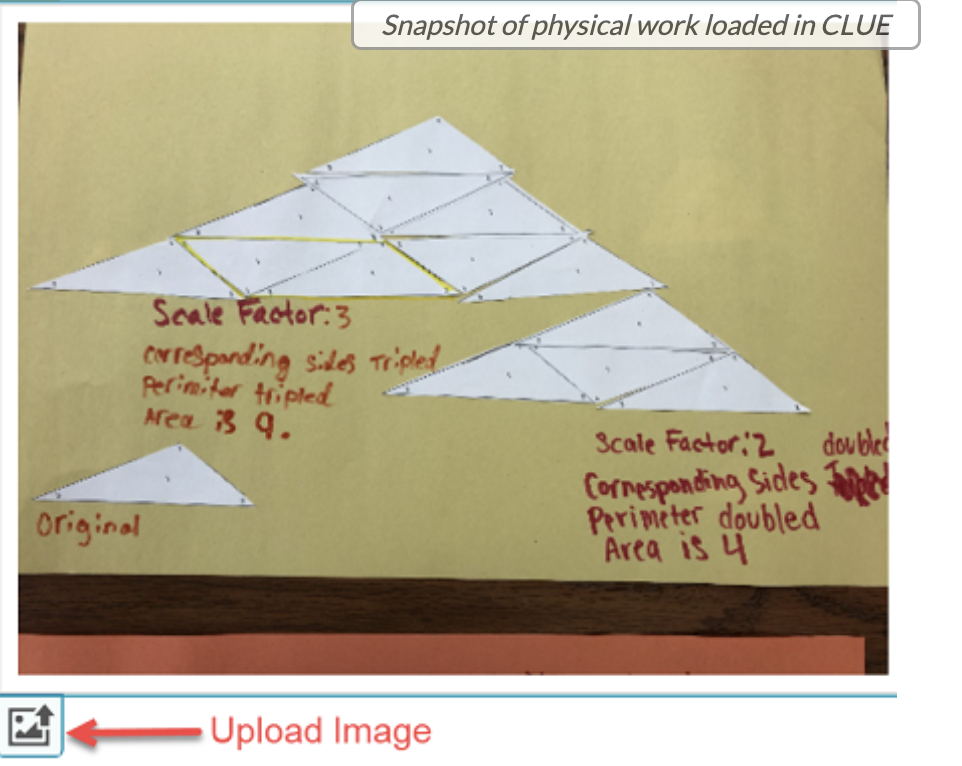 Snapshot of physical work loaded in CLUE
Scale Factor: 3
corresponding sides Tripled
Perimiter tripled
Area is 9.
Original
Scale Factor: 2
doubled
Corresponding Sides
Perimeter doubled
Area is 4
Upload Image